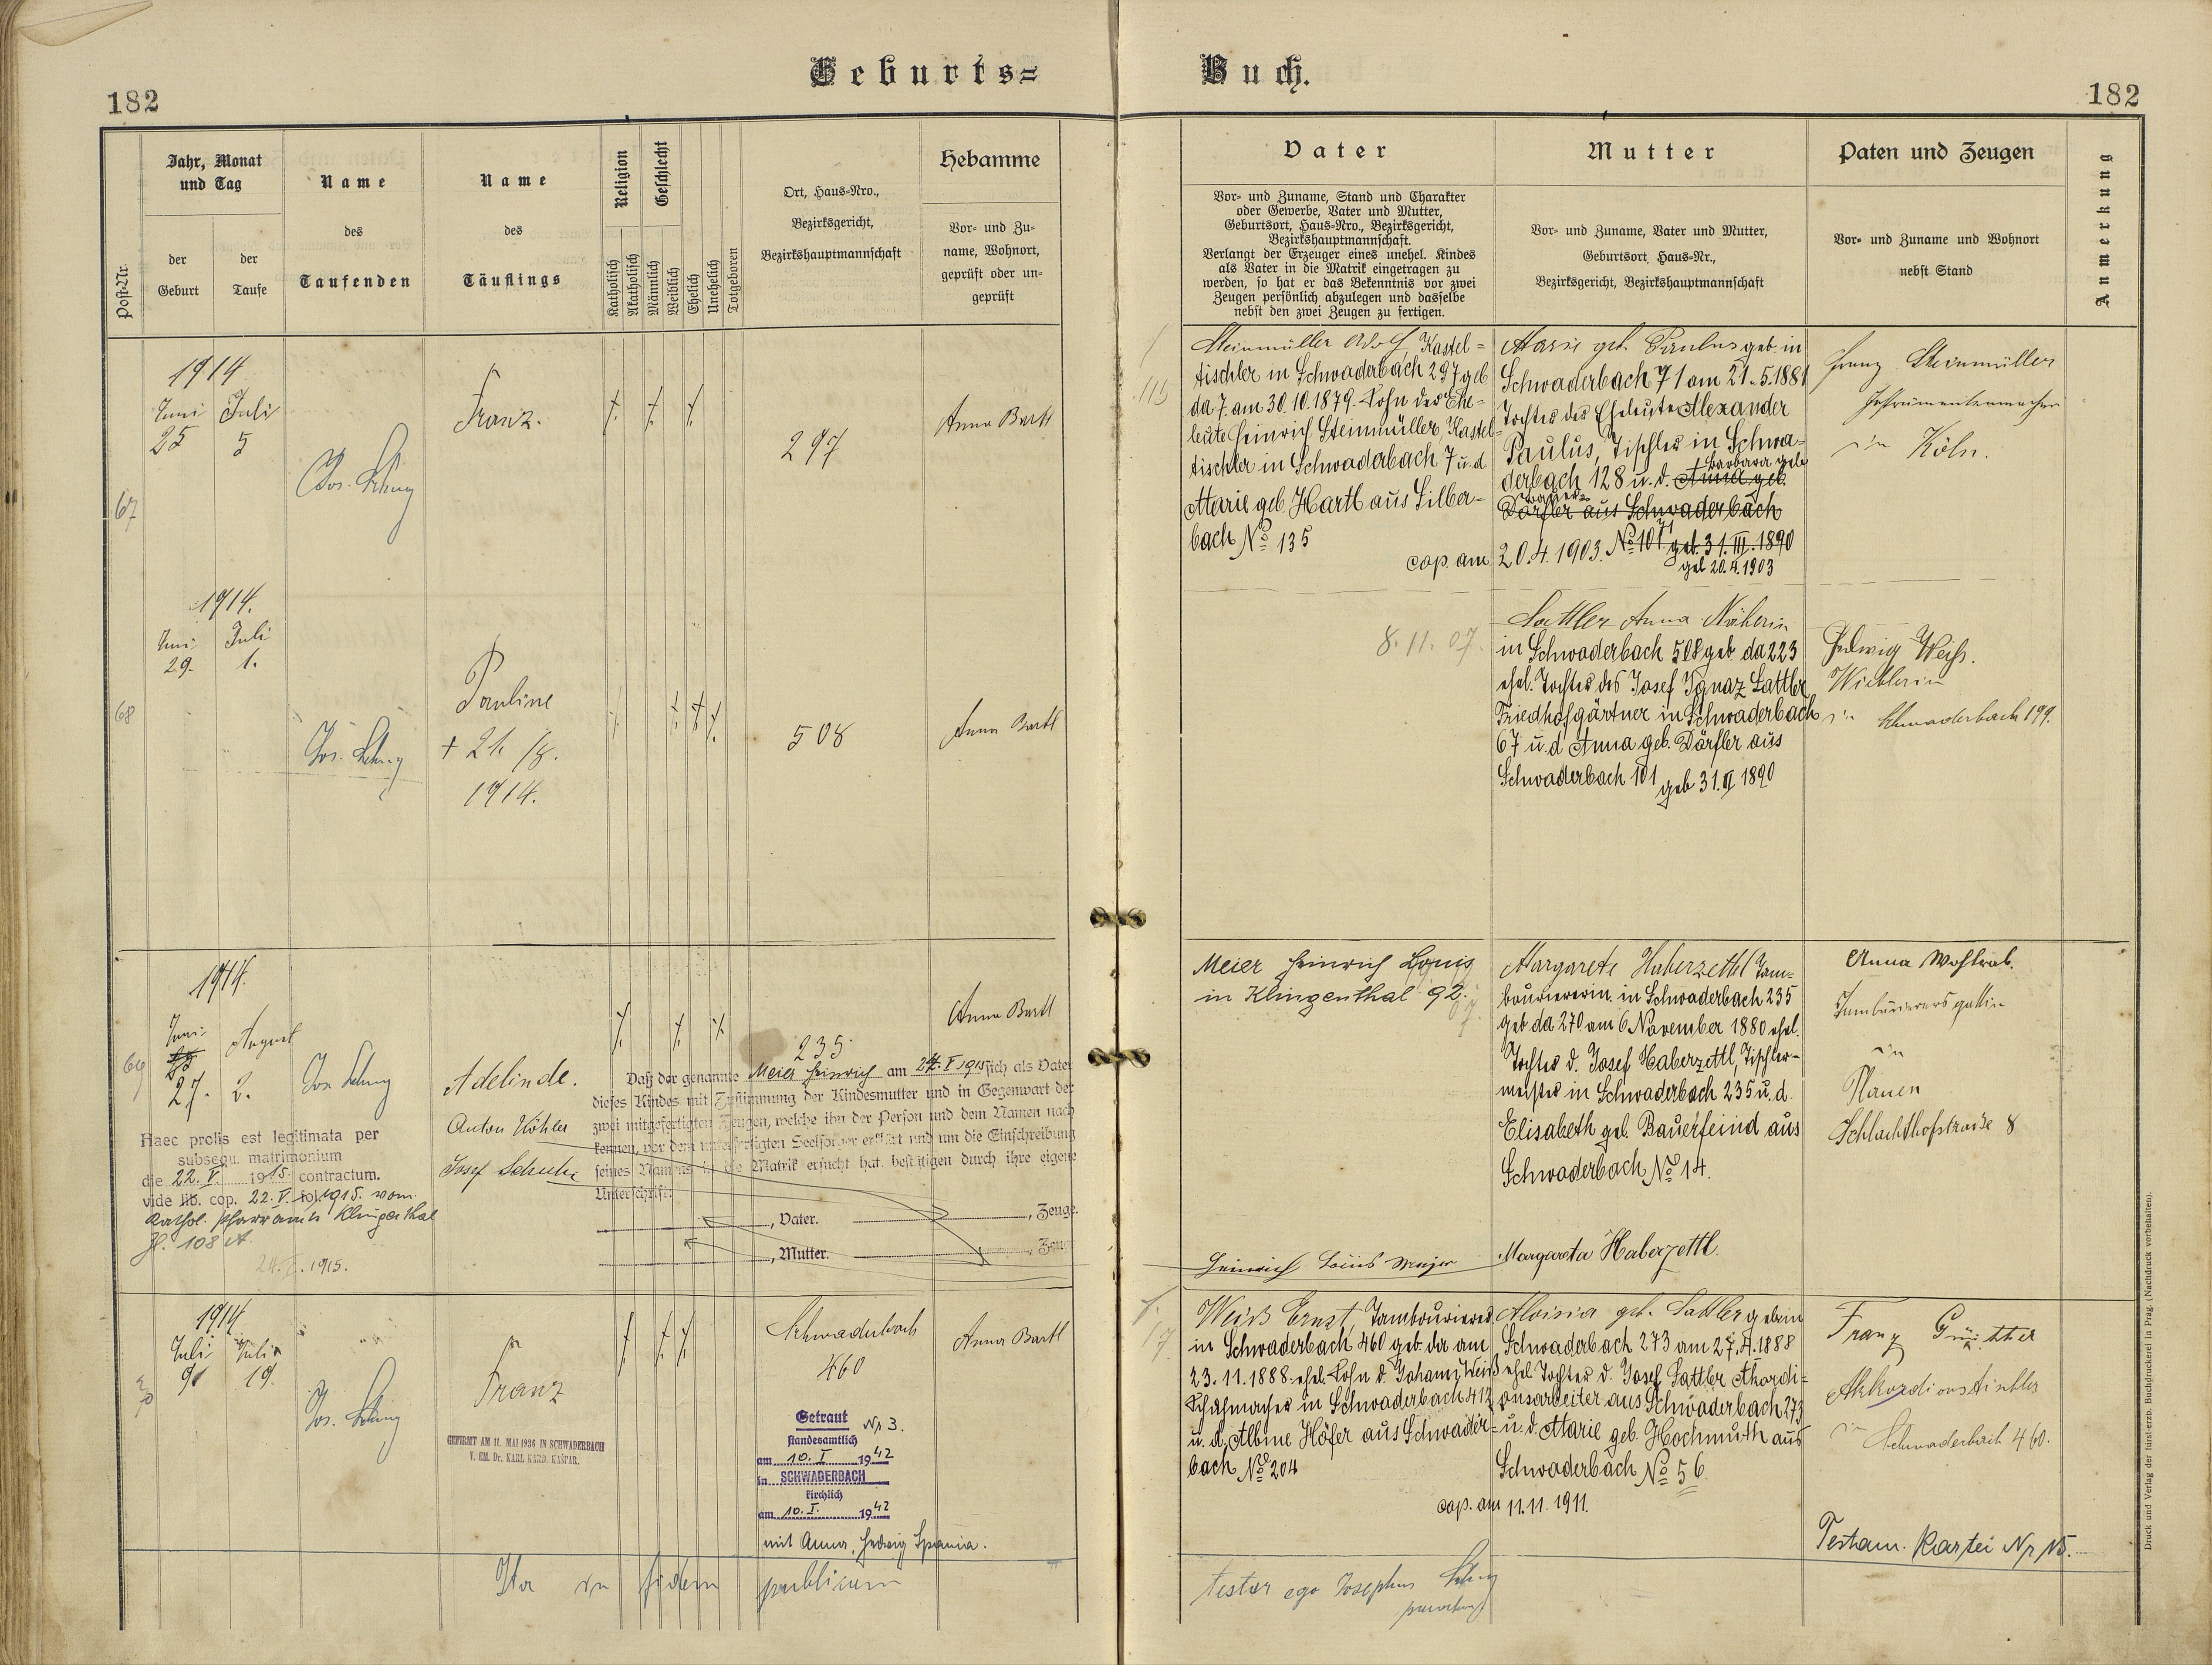 Geburts=
Buch.
182
182
Post-Nr.
Jahr, Monat
und Tag
der
Geburt
der
Taufe
Name
des
Taufenden
Name
des
Täuflings
Religion
Katholisch
Akatholisch
Geschlecht
Männlich
Weiblich
Ehelich
Unehelich
Totgeboren
Ort, Haus-Nro.,
Bezirksgericht,
Bezirkshauptmannschaft
Hebamme
Vor- und Zu-
name, Wohnort,
geprüft oder un-
geprüft
Vater
Vor- und Zuname, Stand und Charakter
oder Gewerbe, Vater und Mutter,
Geburtsort, Haus-Nro., Bezirksgericht,
Bezirkshauptmannschaft.
Verlangt der Erzeuger eines unehel. Kindes
als Vater in die Matrik eingetragen zu
werden, so hat er das Bekenntnis vor zwei
Zeugen persönlich abzulegen und dasselbe
nebst den zwei Zeugen zu fertigen.
Mutter
Vor- und Zuname, Vater und Mutter,
Geburtsort, Haus-Nr.,
Bezirksgericht, Bezirkshauptmannschaft
Paten und Zeugen
Vor- und Zuname und Wohnort
nebst Stand
Anmerkung
67
1914
Juni
25
Juli
5
Franz.
297
Anna Bartl
Steinmüller Adolf, Kastel=
tischler in Schwaderbach 297 geb
da 7. am 30.10.1879. Sohn der Ehe-
leute Heinrich Steinmüller, Kastel=
tischler in Schwaderbach 7 u d
Marie geb. Hartl aus Silber-
bach No 135
cop. am 20.4.1903.
Marie geb. Paulus geb. in
Schwaderbach 71 am 21.5.1881
Tochter der Eheleute Alexander
Paulus, Tischler in Schwa-
derbach 128 u. d. Anna geb.
Barbara geb
Dörfler aus Schwaderbach
No 101 geb. 31.III.1890
71
geb 20.4.1903
Franz Steinmüller
Instrumentenmacher
in Köln.
68
1914.
Juni
29.
Juli
1.
Pauline
+ 21./8.
1914.
508
Anna Bartl
8.11.07.
Sattler Anna Näherin
in Schwaderbach 508 geb. da 223
ehel. Tochter des Josef Ignaz Sattler
Friedhofgärtner in Schwaderbach
67 u. d Anna geb. Dörfler aus
Schwaderbach 101 geb 31.III 1890
Hedwig Weiß.
in Schwaderbach 199.
69
1914.
Juni
27.
August
2.
Adelinde.
Anton Köhler
235
Anna Bartl
Daß der genannte Meier Heinrich am 24.V.1915 sich als Vater
dieses Kindes mit Zustimmung der Kindesmutter und in Gegenwart der
zwei mitgefertigten Zeugen, welche ihn der Person und dem Namen nach
kennen, vor dem unterfertigten Seelsorger erklärt und um die Einschreibung
seines Namens in die Matrik ersucht hat, bestätigen durch ihre eigene
Unterschrift:
, Vater.
, Zeuge.
, Mutter.
, Zeuge
Haec prolis est legitimata per
subsequ. matrimonium
die 22. V. 1915. contractum.
vide lib. cop. 22. V. fol. 1915. vom
kathol. Pfarramte Klingenthal
Zl. 108 A
24.V.1915.
Meier Heinrich Louis
in Klingenthal 92.
Heinrich Louis Meier
Margarete Haberzettl Tam=
bouriererin in Schwaderbach 235
geb da 270 am 6 November 1880 ehel.
Tochter d. Josef Haberzettl, Tischler-
meister in Schwaderbach 235 u. d.
Elisabeth geb. Bauerfeind aus
Schwaderbach No 14.
Margareta Haberzettl.
Anna Wohlrab.
Tambourierersgattin
in
Plauen
Schlachthofstraße 8
70
1914
Juli
9
Juli
19.
Franz
GEFIRMT AM 11. MAI 1936 IN SCHWADERBACH
V. EM. Dr. KARL KARD. KAŠPAR.
Schwaderbach
460
Anna Bartl
Getraut Nr. 3.
standesamtlich
am 10. I. 1942
in SCHWADERBACH
kirchlich
am 10. I. 1942
mit Anna, Hedwig Spania.
Weiß Ernst, Tambourierer
in Schwaderbach 460 geb. da am
23.11.1888 ehel. Sohn d. Johann Weiß
Schuhmacher in Schwaderbach 412
u. d. Albine Höfer aus Schwader-
bach No 204
cop. am 11.11.1911.
Aloisia geb. Sattler geb. in
Schwaderbach 273 am 27.4.1888
ehel. Tochter d. Josef Sattler Akordi=
onsarbeiter aus Schwaderbach 273
u. d. Marie geb. Hochmuth aus
Schwaderbach No 56.
Franz Günther
Akkordionstischler
in Schwaderbach 460.
Testam. Kartei Nr 15.
Ita in fidem publicam
testor ego Josephus
Druck und Verlag der fürst-erzb. Buchdruckerei in Prag. (Nachdruck vorbehalten).